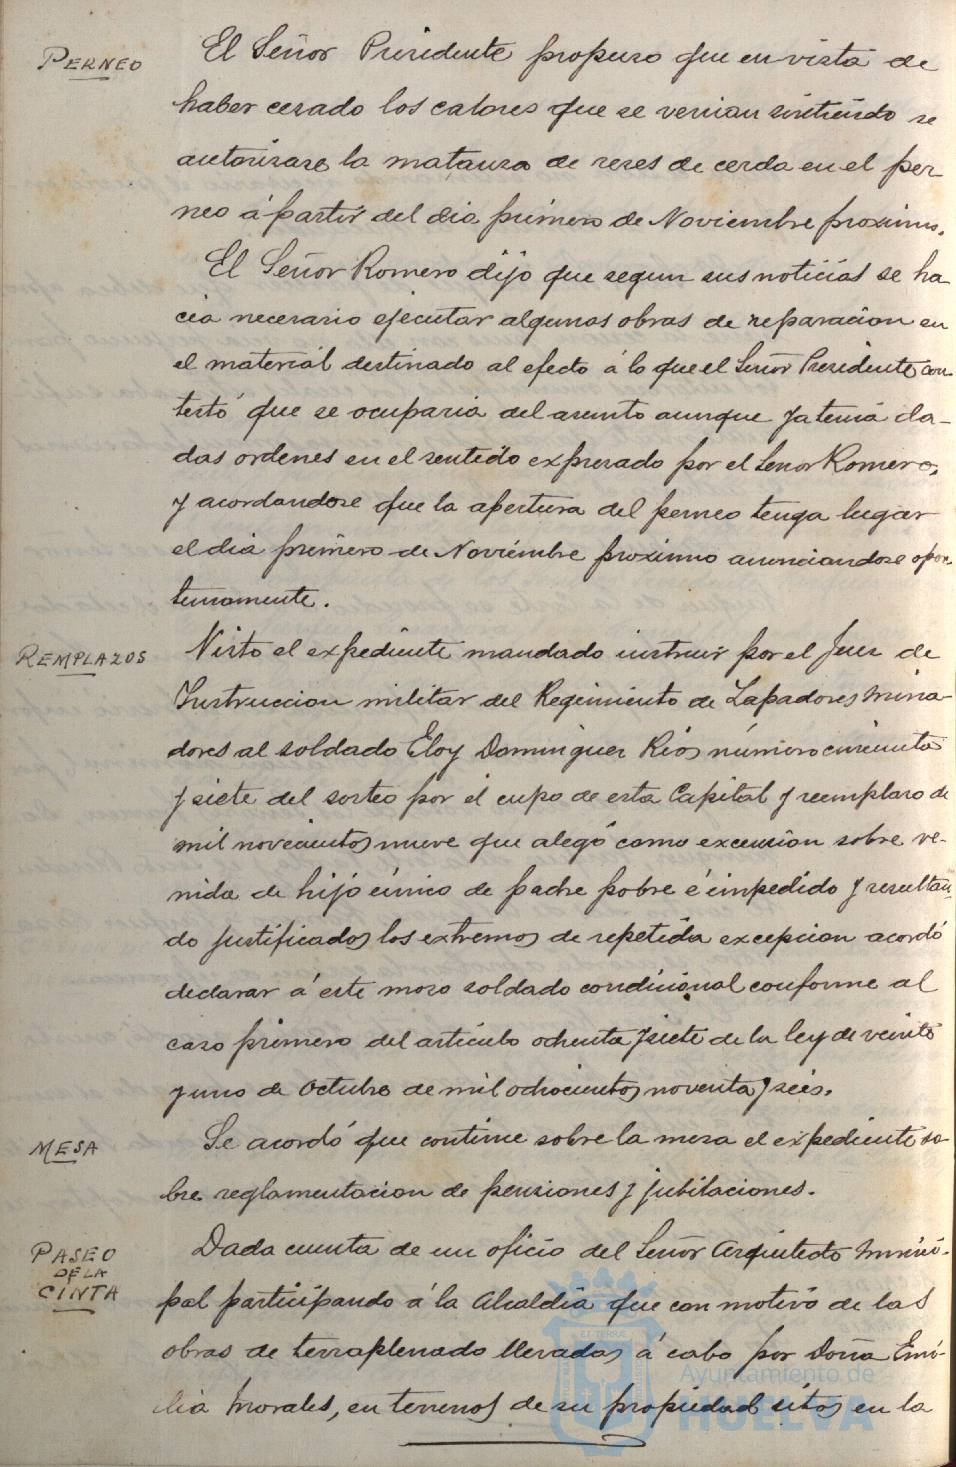 PERNEO
El Señor Presidente propuso que en vista de
haber cesado los calores que se venian sintiendo se
autorizase la matanza de reses de cerda en el per
neo á partir del dia primero de Noviembre proximo.
El Señor Romero dijo que segun sus noticias se ha
cia necesario ejecutar algunas obras de reparacion en
el material destinado al efecto á lo que el Señor Presidente con
testó que se ocuparia del asunto aunque ya tenia da-
das ordenes en el sentido expresado por el Señor Romero,
y acordandose que la apertura del perneo tenga lugar
el dia primero de Noviembre proximo anunciandose opor
tunamente.
REMPLAZOS
Visto el expediente mandado instruir por el Juez de
Instruccion militar del Regimiento de Zapadores Mina-
dores al soldado Eloy Dominguez Rios número cincuenta
y siete del sorteo por el cupo de esta Capital y reemplazo de
mil novecientos nueve que alegó como excension sobre ve-
nida de hijo único de padre pobre é impedido y resultan
do justificados los extremos de repetida excepcion acordó
declarar á este mozo soldado condicional conforme al
caso primero del articulo ochenta y siete de la ley de veinte
y uno de Octubre de mil ochocientos noventa y seis.
MESA
Se acordó que continue sobre la mesa el expediente so-
bre reglamentacion de pensiones y jubilaciones.
PASEO
DE LA
CINTA
Dada cuenta de un oficio del Señor Arquitecto Munici-
pal participando á la Alcaldia que con motivo de las
obras de terraplenado llevadas á cabo por Doña Emi-
lia Morales, en terrenos de su propiedad sitos en la
Ayuntamiento de
HUELVA